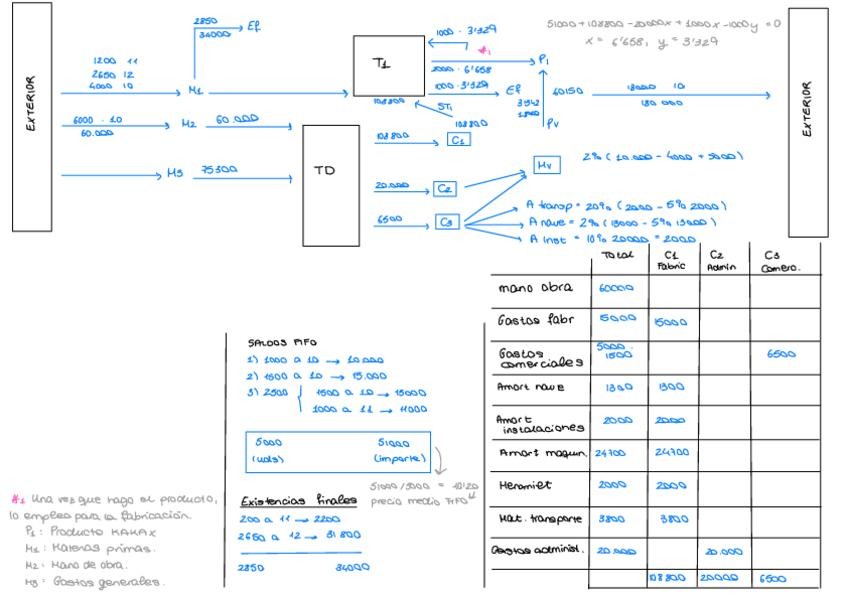 EXTERIOR
2850
34000
Ef
1200 11
2650 12
4000 10
M1
6000 . 10
60.000
M2
60.000
M3
75300
T1
TD
1000 . 3'329
#1
2000 . 6'658
P1
1000 . 3'329
Ef
ST1
108800
108800
108.800
C1
20.000
C2
6500
C3
40150
PV
51000 + 108800 - 20000x + 1000x - 1000y = 0
x = 6'658, y = 3'329
180 000
EXTERIOR
Mv
2% ( 10.000 - 4000 + 5000 )
A transp = 20% ( 2000 - 5% 2000 )
A nave = 2% ( 13000 - 5% 13000 )
A inst = 10% 20000 = 2000
Total C1 Fabric C2 Admin C3 Comerc.
mano obra 60000
Gastos fabr 15000 15000
Gastos comerciales 5000 . 1500 6500
Amort nave 1300 1300
Amort instalaciones 2000 2000
Amort maquin. 24700 24700
Heramiet 2000 2000
Mat. transporte 3800 3800
Gastos administ. 20.000 20.000
108 800 20000 6500
SALDOS FIFO
1) 1000 a 10 → 10.000
2) 1500 a 10 → 15.000
3) 2500 { 1500 a 10 → 15000
1000 a 11 → 11000
5000 51000
(uds) (importe)
51000 / 5000 = 10'20
precio medio FIFO
Existencias finales
200 a 11 → 2200
2650 a 12 → 31 800
2850 34000
#1 Una vez que hago el producto,
lo empleo para la fabricación.
P1: Producto KAKAX
M1: Materias primas.
M2: Mano de obra.
M3: Gastos generales.